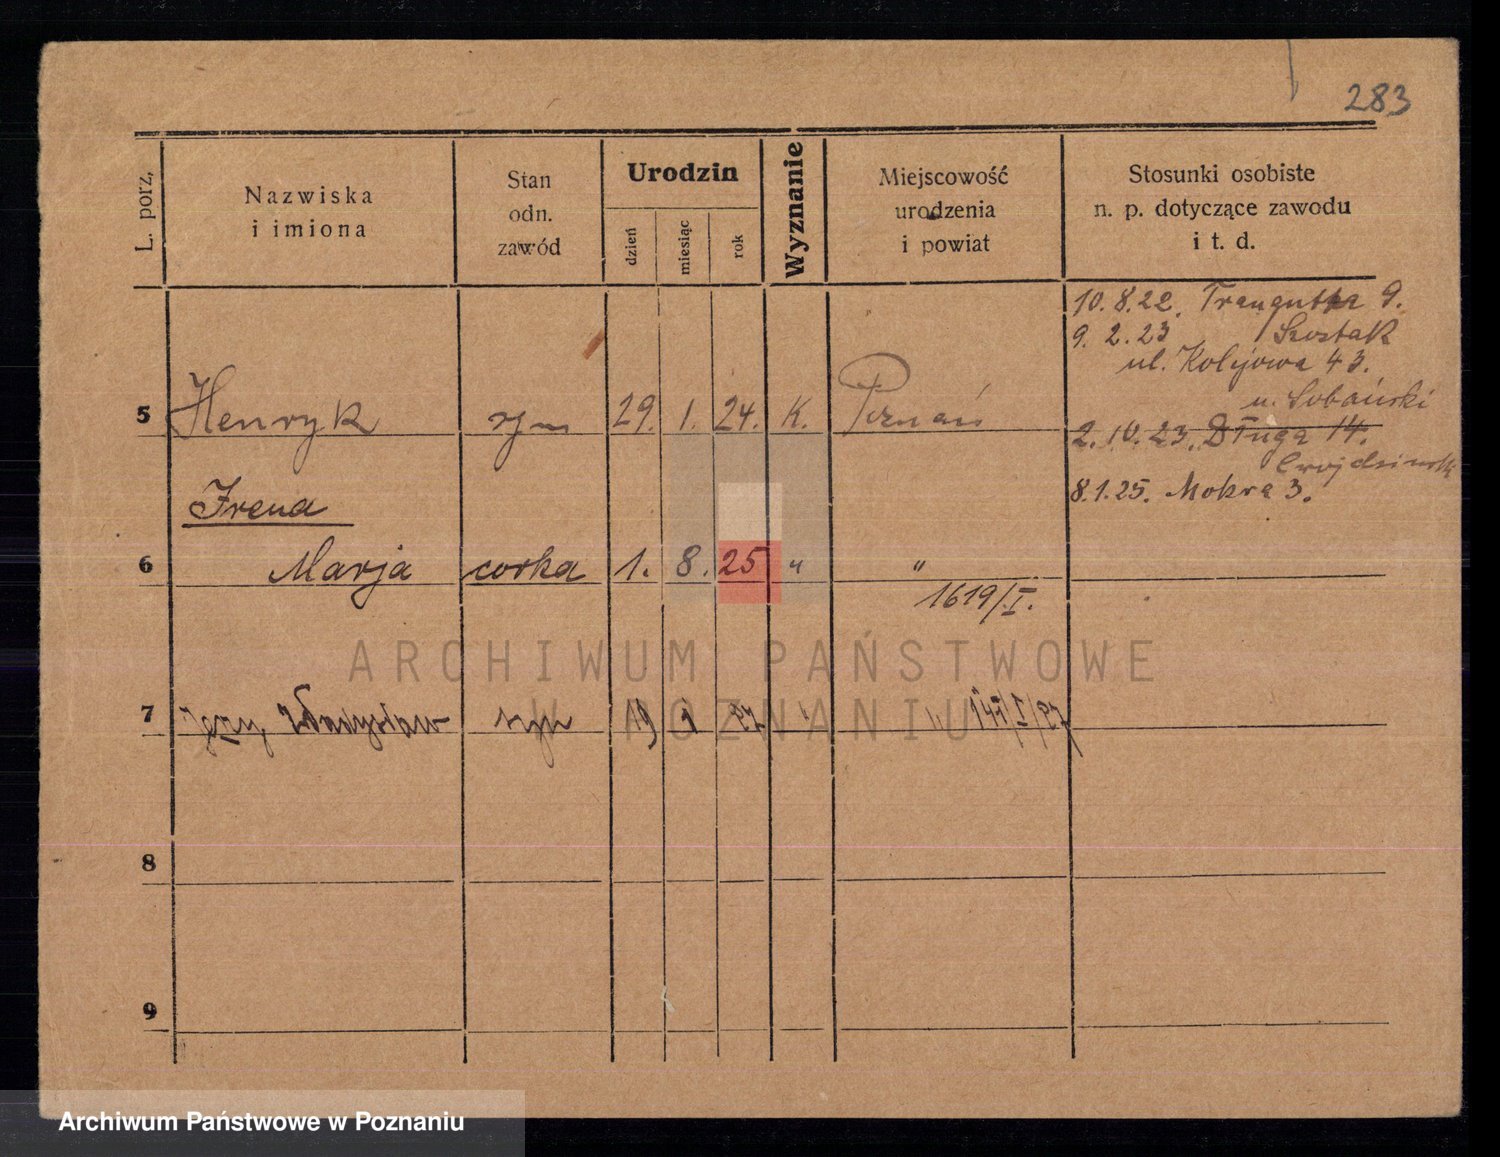 283
L. porz.
Nazwiska
i imiona
Stan
odn.
zawód
Urodzin
dzień
miesiąc
rok
Wyznanie
Miejscowość
urodzenia
i powiat
Stosunki osobiste
n. p. dotyczące zawodu
i t. d.
10.8.22. Trauguta 9.
9.2.23 Szostak
ul. Kolejowa 43.
u. Sobański
5 Henryk syn 29. 1. 24. K. Poznań
2.10.23. Długa 14.
8.1.25. Mokra 3.
Irena
6 Marja corka 1. 8. 25 " "
1619/I.
7 Jerzy, Władysław syn 19 1 27 " " 141/I/27
8
9
ARCHIWUM PAŃSTWOWE
W POZNANIU
Archiwum Państwowe w Poznaniu